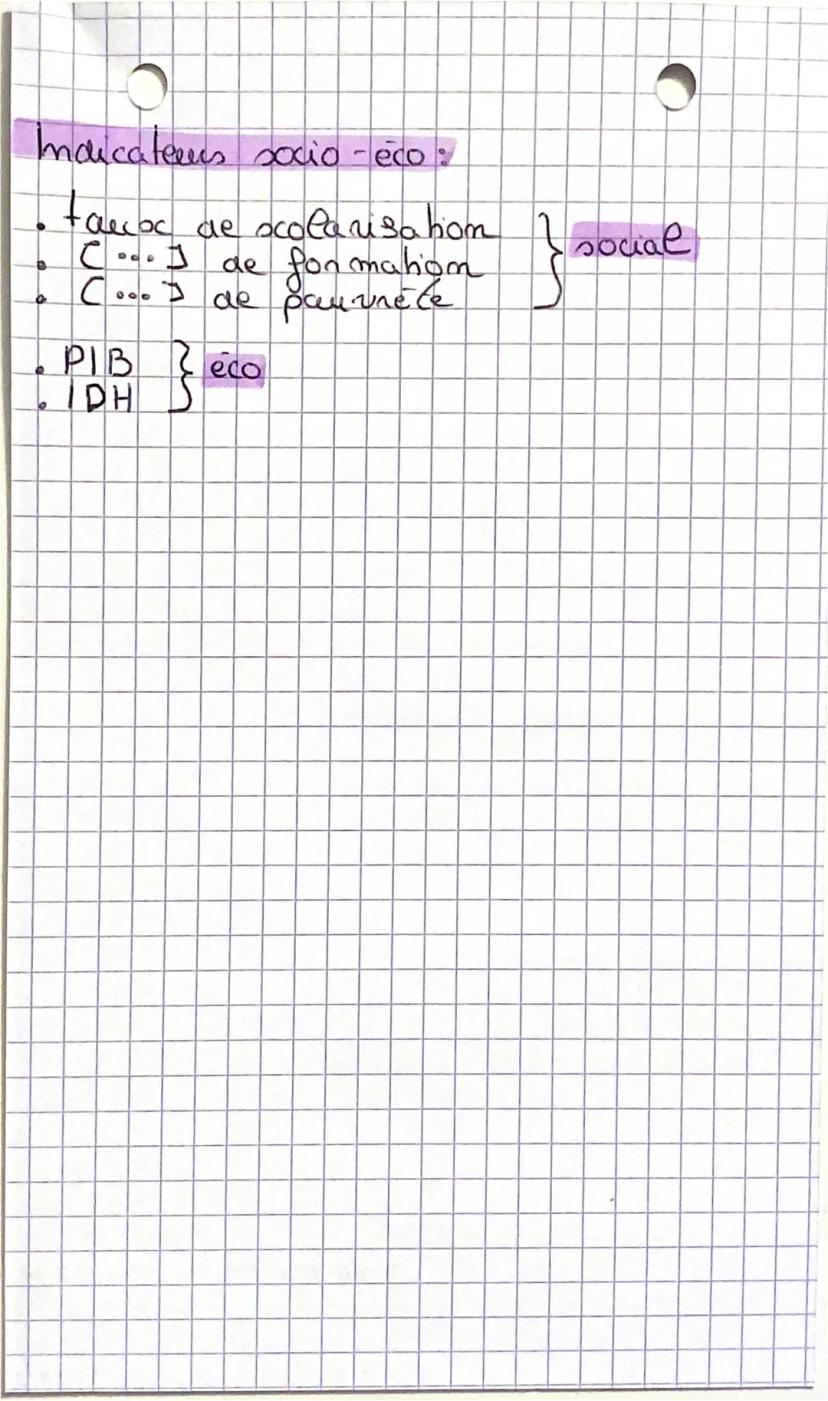 Indicateurs socio-éco :
. taux de scolarisation } social
. [...] de formation
. [...] de pauvreté
. PIB } éco
. IDH